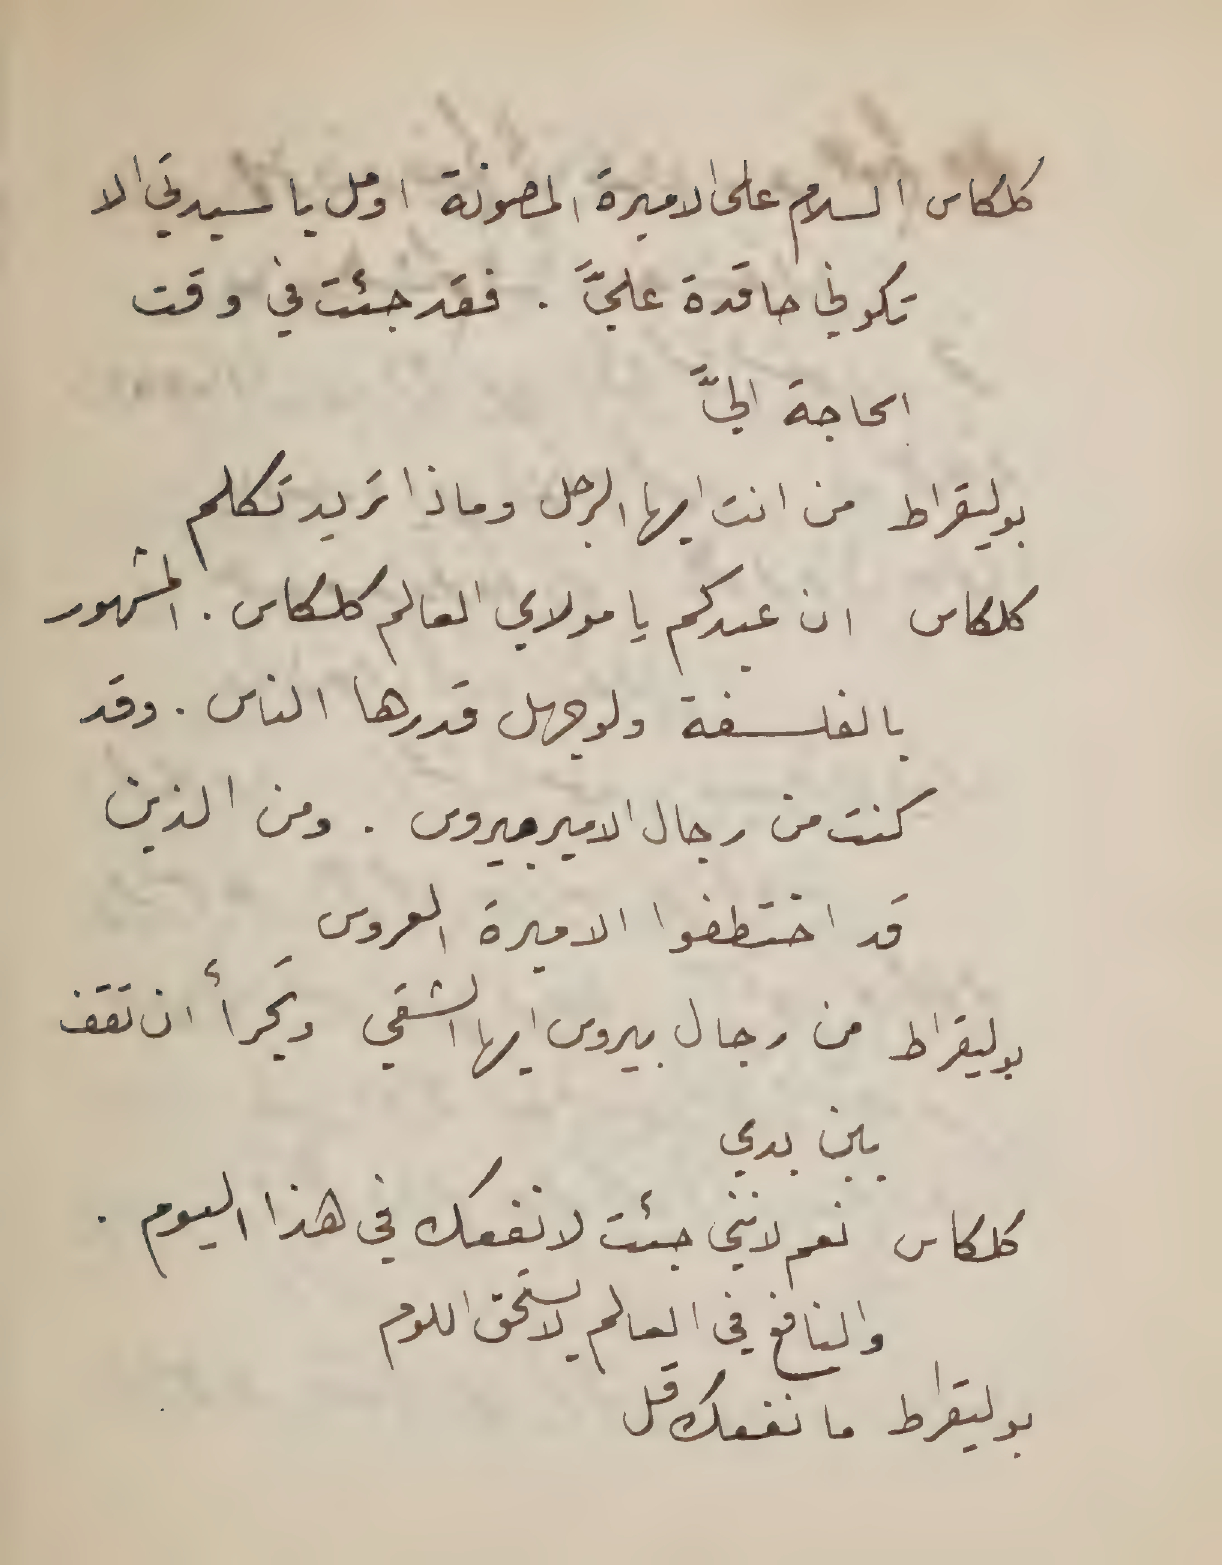 كلكاس السلام على الاميرة المصونة اومل يا سيدتي الا
تكوني حاقدة عليَّ . فقد جئت في وقت
الحاجة اليَّ
بوليقراط من انت ايها الرجل وماذا تريد تكلم
كلكاس ان عبدكم يا مولاي العالم كلكاس . المشهور
بالفلسفة ولو جهل قدرها الناس . وقد
كنت من رجال الامير بيروس . ومن الذين
قد اختطفوا الاميرة العروس
بوليقراط من رجال بيروس ايها الشقي وتَجرأ ان تقف
بين يدي
كلكاس نعم لانني جئت لانفعك في هذا اليوم .
والنافع في العالم لا يستحق اللوم
بوليقراط ما نفعك قل